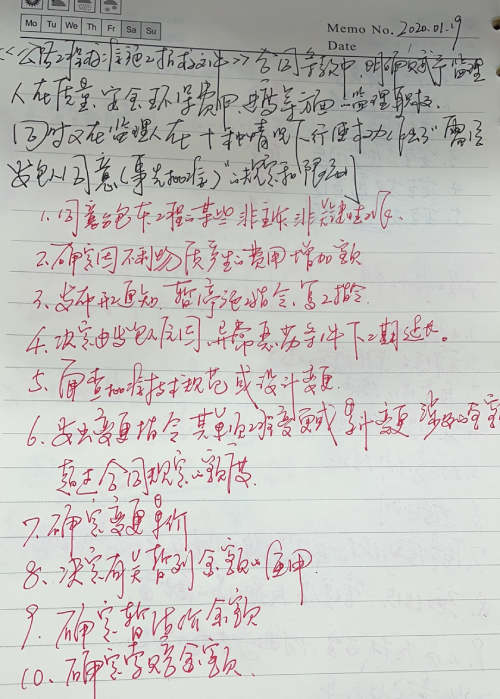 Mo Tu We Th Fr Sa Su
Memo No. 2020.01.19
Date
《公路工程标准施工招标文件》合同条款中,明确赋予监理
人在质量、安全、环保、费用、进度等方面的监理职权,
同时又在监理人在十种情况下行使权力作出了"需经
发包人同意(事先批准)"的规定和限制
1、同意分包本工程的某些非主体、非关键性工作.
2、确定因不利物质产生的费用增加额
3、发布开工通知、暂停施工指令、复工指令.
4、决定由发包人原因、异常恶劣条件下工期延长。
5、审查批准技术规范或设计变更.
6、发出变更指令其单项工程变更或累计变更涉及的金额
超过合同规定的额度.
7、确定变更单价
8、决定有关暂列金额的使用.
9、确定暂估价金额
10、确定索赔金额.